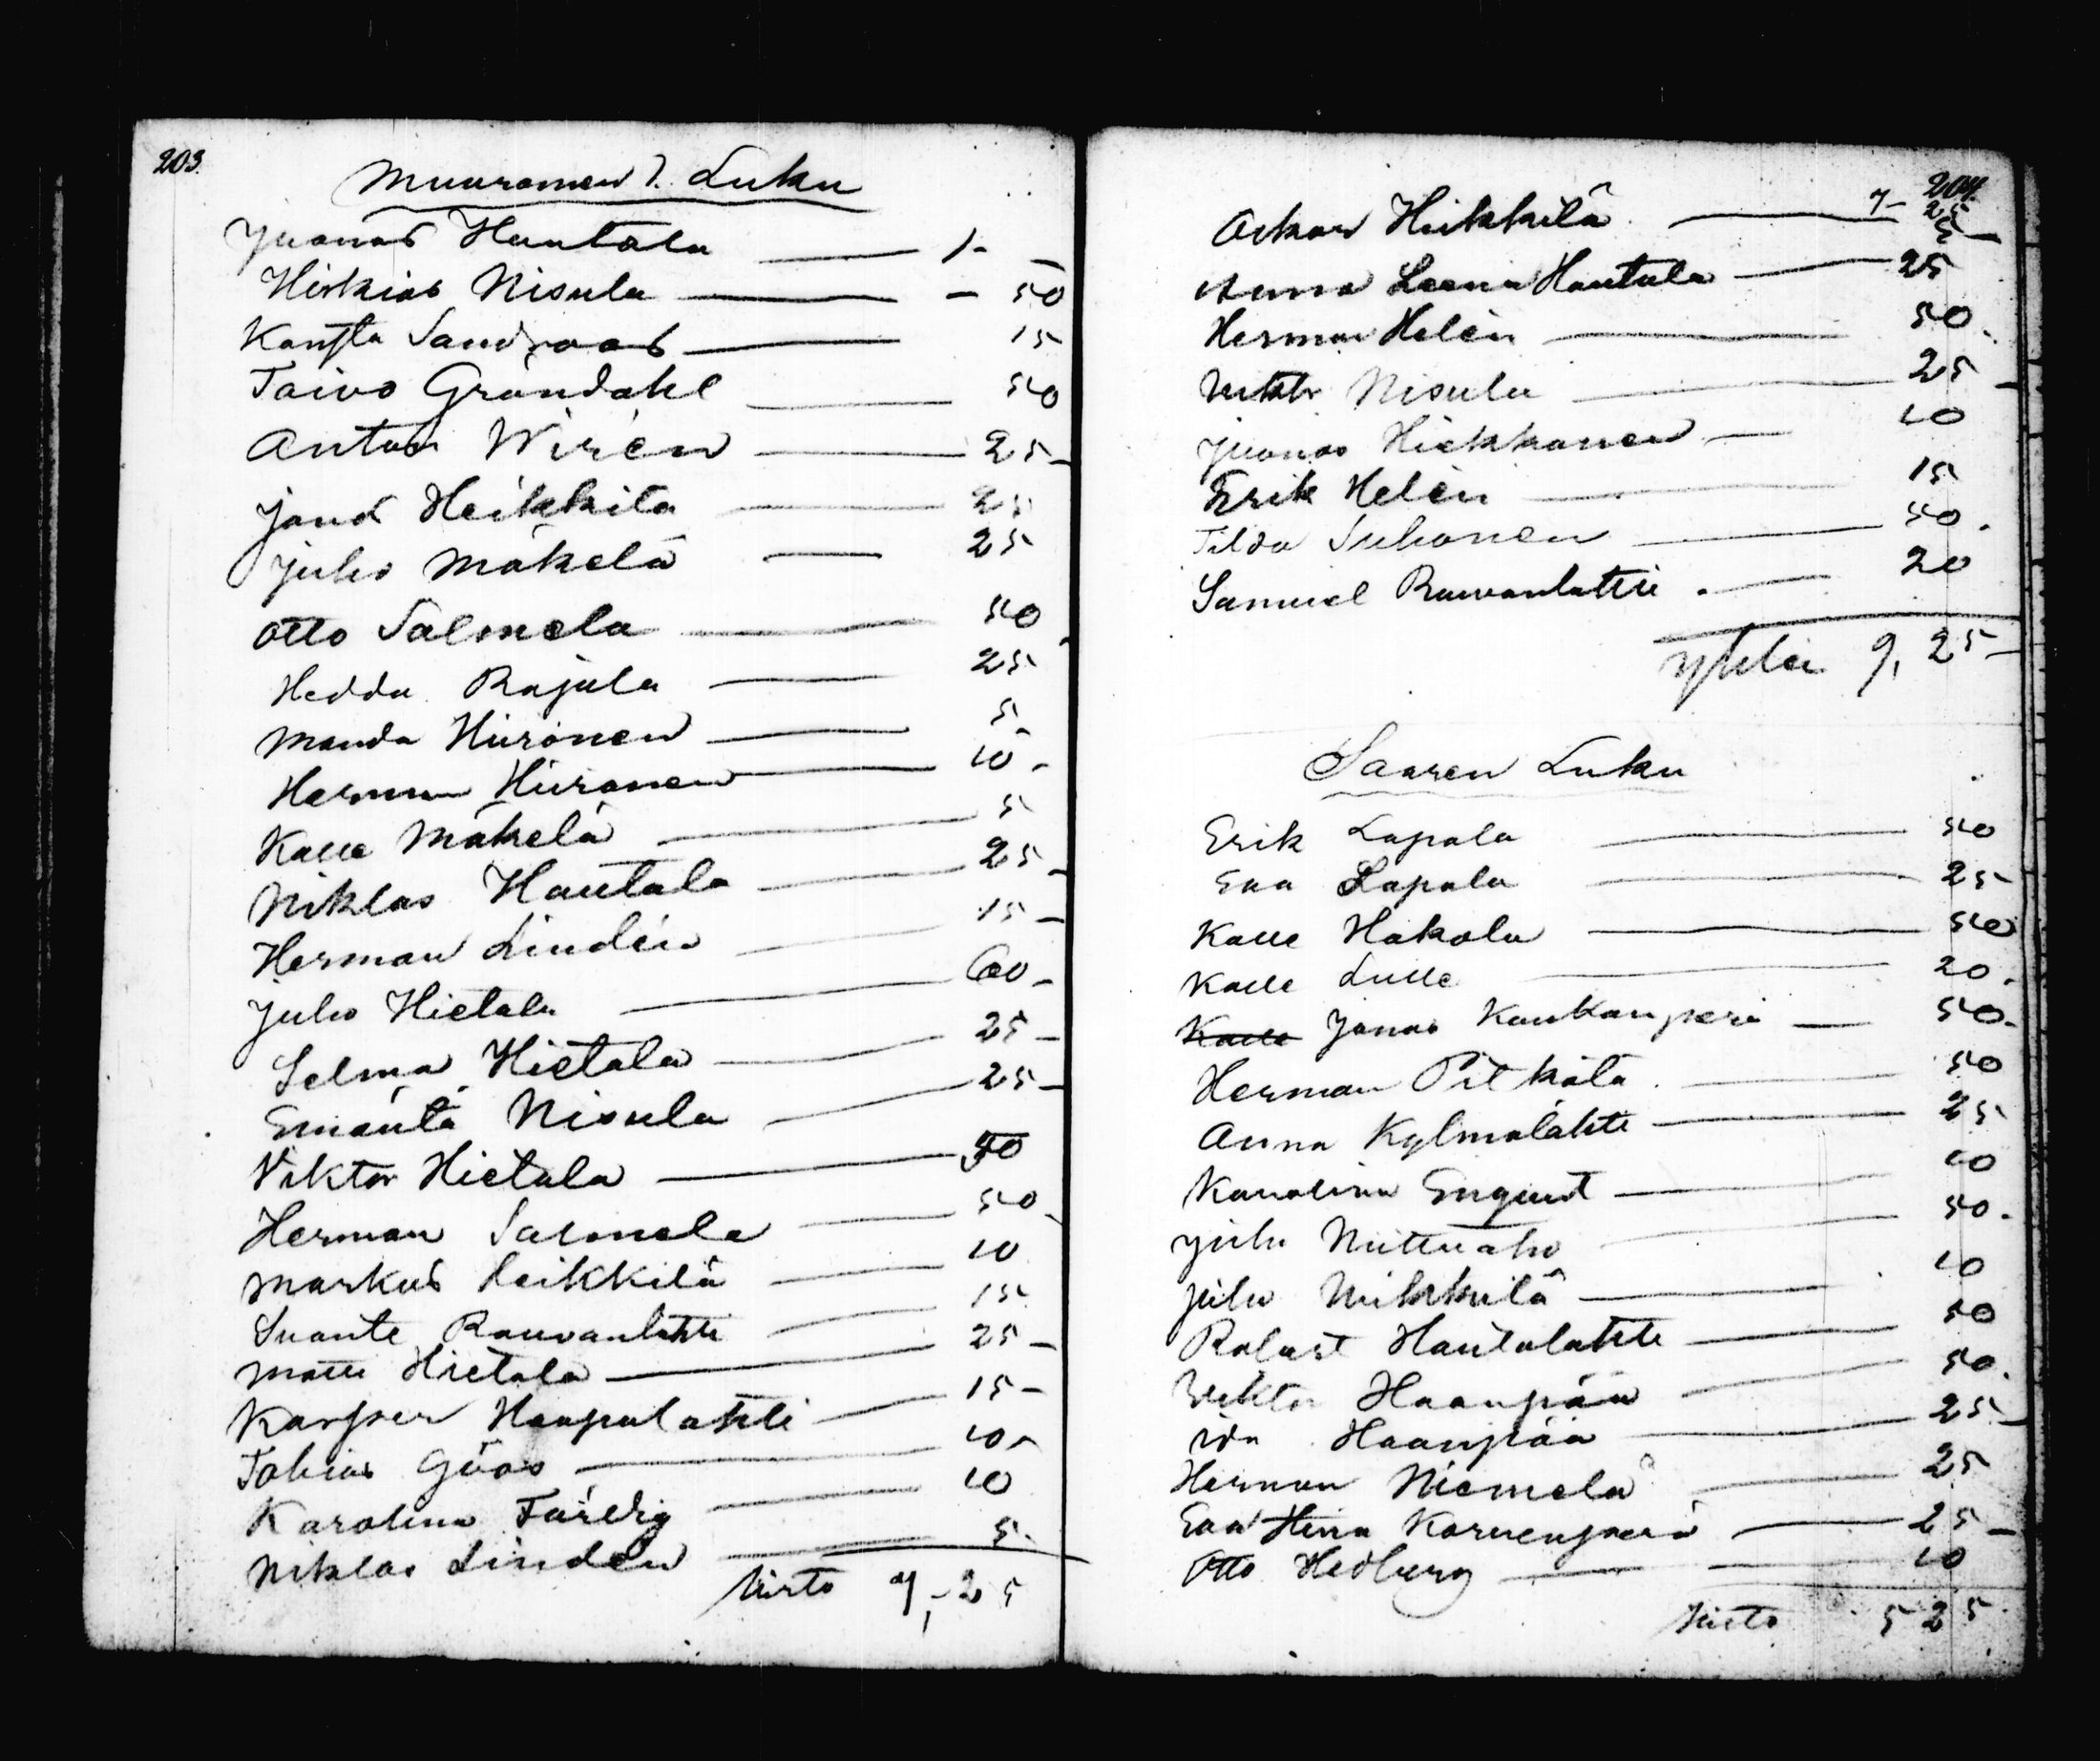 203.
Muuramen 1. Luku
Juonas Hautala — 1 -
Hiskias Nisula — - 50
Kansta Sandroos — 15
Toivo Gröndahl — 50
Anton Wirén — 25
Jonas Heikkilä — 25
Juho Mäkelä — 25
Otto Salmela — 50
Hedda Rajala — 25
Manda Hiironen — 5
Herman Hiironen — 10
Kalle Mäkelä — 5
Niklas Hautala — 25
Herman Lindén — 15
Juho Hietala — 60
Selma Hietala — 25
Emäntä Nisula — 25
Viktor Hietala — 50
Herman Salmela — 50
Markus Heikkilä — 10
Svante Rauvanlahti — 15
Matti Hietala — 25
Kasper Haapalahti — 15
Tobias Göös — 10
Karolina Färdig — 10
Niklas Linden — 5
Siirto 7,-25
204.
7- 25
Oskar Heikkilä — 25
Anna Leena Hautala — 25
Herman Helén — 50
Viktor Nisula — 25
Juonas Hiekkanen — 10
Erik Helén — 15
Tilda Suhonen — 50
Samuel Rauvanlahti — 20
Yhtei 9,25
Saaren Luku
Erik Lapala — 50
Eva Lapala — 25
Kalle Hakola — 50
Kalle Lulle — 20
Kalle Jonas Kaukanperi — 50
Herman Pitkälä — 50
Anna Kylmälahti — 25
Karolina Enqvist — 10
Juho Niittuaho — 50
Juho Mikkilä — 10
Hautalahti — 50
Viktor Haanpää — 50
Ida Haanpää — 25
Herman Niemelä — 25
Eva Stina Korvenperä — 25
Otto Hedberg — 10
Siirto 5 25